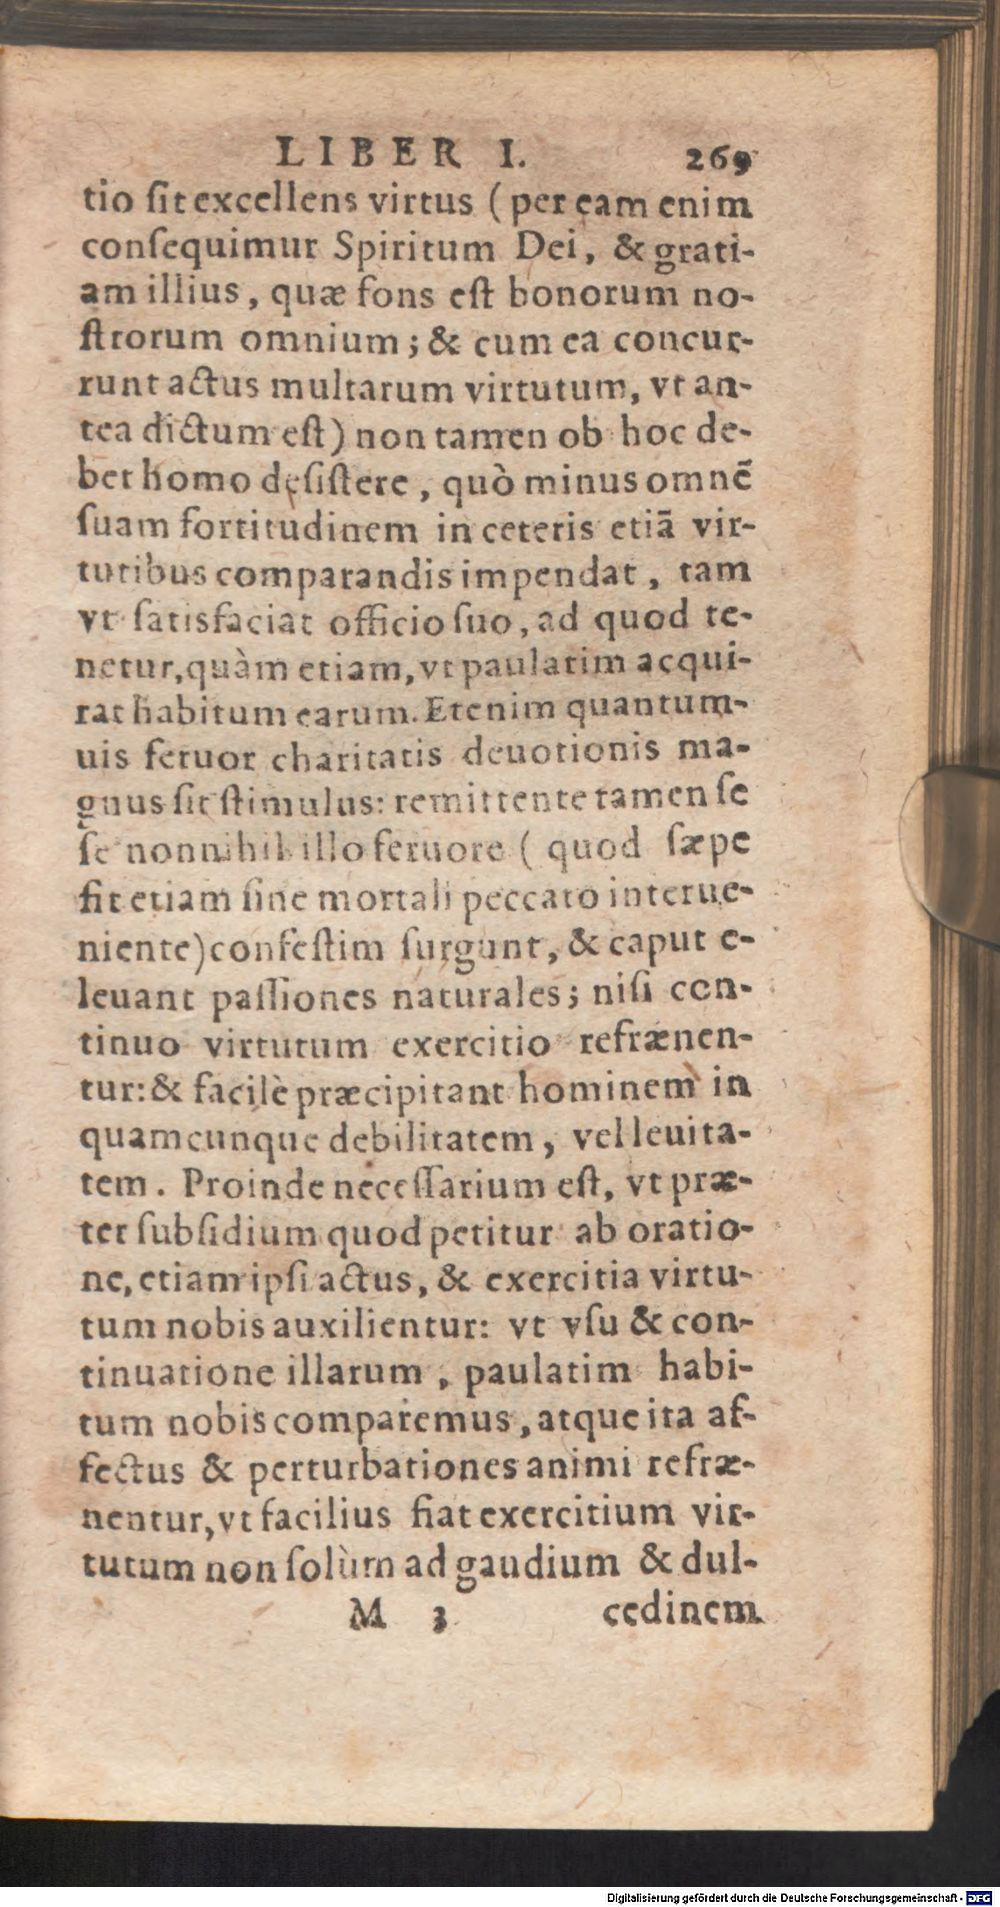 LIBER I. 269
tio ſit excellens virtus ( per eam enim
conſequimur Spiritum Dei, & grati-
am illius, quæ fons eſt bonorum no-
ſtrorum omnium; & cum ea concur-
runt actus multarum virtutum, vt an-
tea dictum eſt) non tamen ob hoc de-
bet homo deſiſtere, quò minus omnẽ
ſuam fortitudinem in ceteris etiã vir-
tutibus comparandis impendat, tam
vt ſatisfaciat officio ſuo, ad quod te-
netur, quàm etiam, vt paulatim acqui-
rat habitum earum. Etenim quantum-
uis feruor charitatis deuotionis ma-
gnus ſit ſtimulus: remittente tamen ſe
ſe nonnihil illo feruore ( quod ſæpe
fit etiam ſine mortali peccato interue-
niente) confeſtim ſurgunt, & caput e-
leuant paſſiones naturales; niſi con-
tinuo virtutum exercitio refrænen-
tur: & facilè præcipitant hominem in
quamcunque debilitatem, vel leuita-
tem. Proinde neceſſarium eſt, vt præ-
ter ſubſidium quod petitur ab oratio-
ne, etiam ipſi actus, & exercitia virtu-
tum nobis auxilientur: vt vſu & con-
tinuatione illarum, paulatim habi-
tum nobis comparemus, atque ita af-
fectus & perturbationes animi refræ-
nentur, vt facilius fiat exercitium vir-
tutum non ſolùm ad gaudium & dul-
M 3 cedinem
Digitalisierung gefördert durch die Deutsche Forschungsgemeinschaft - DFG